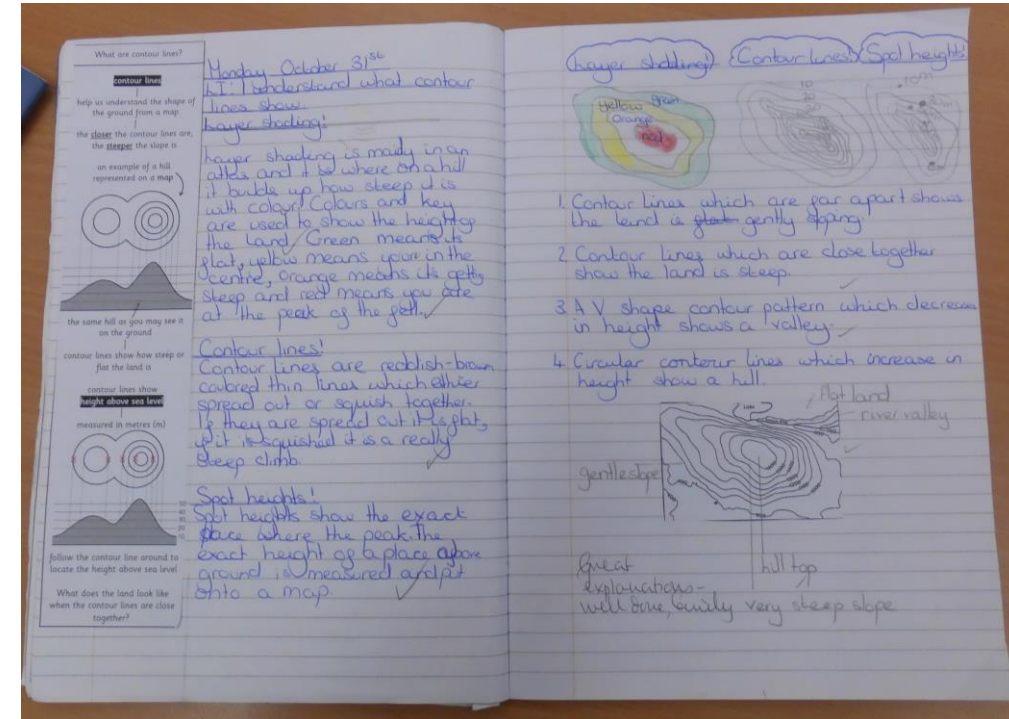 What are contour lines?
contour lines
help us understand the shape of
the ground from a map
the closer the contour lines are,
the steeper the slope is
an example of a hill
represented on a map
the same hill as you may see it
on the ground
contour lines show how steep or
flat the land is
contour lines show
height above sea level
measured in metres (m)
follow the contour line around to
locate the height above sea level
What does the land look like
when the contour lines are close
together?
Monday October 31st
LI: I understand what contour
lines show.
Layer shading!
Layer shading is mainly in an
atlas and it is where on a hill
it builds up how steep it is
with colour. Colours and key
are used to show the height of
the land. Green means its
flat, yellow means your in the
centre, orange means its getting
steep and red means you are
at the peak of the
Contour lines!
Contour lines are reddish-brown
coloured thin lines which
spread out or squish together.
If they are spread out it is flat,
if it is squished it is a really
steep climb.
Spot heights!
Spot heights show the exact
place where the peak. The
exact height of a place above
ground is measured and put
onto a map.
Layer shading! Contour lines! Spot heights!
yellow green
orange
red
10
20
10m
1. Contour Lines which are far apart shows
the land is gently sloping.
2. Contour lines which are close together
show the land is steep.
3. A V shape contour pattern which decreases
in height shows a valley.
4. Circular contour lines which increase in
height show a hill.
flat land
river valley
gentle slope
hill top
Great
explanations -
well done, very steep slope